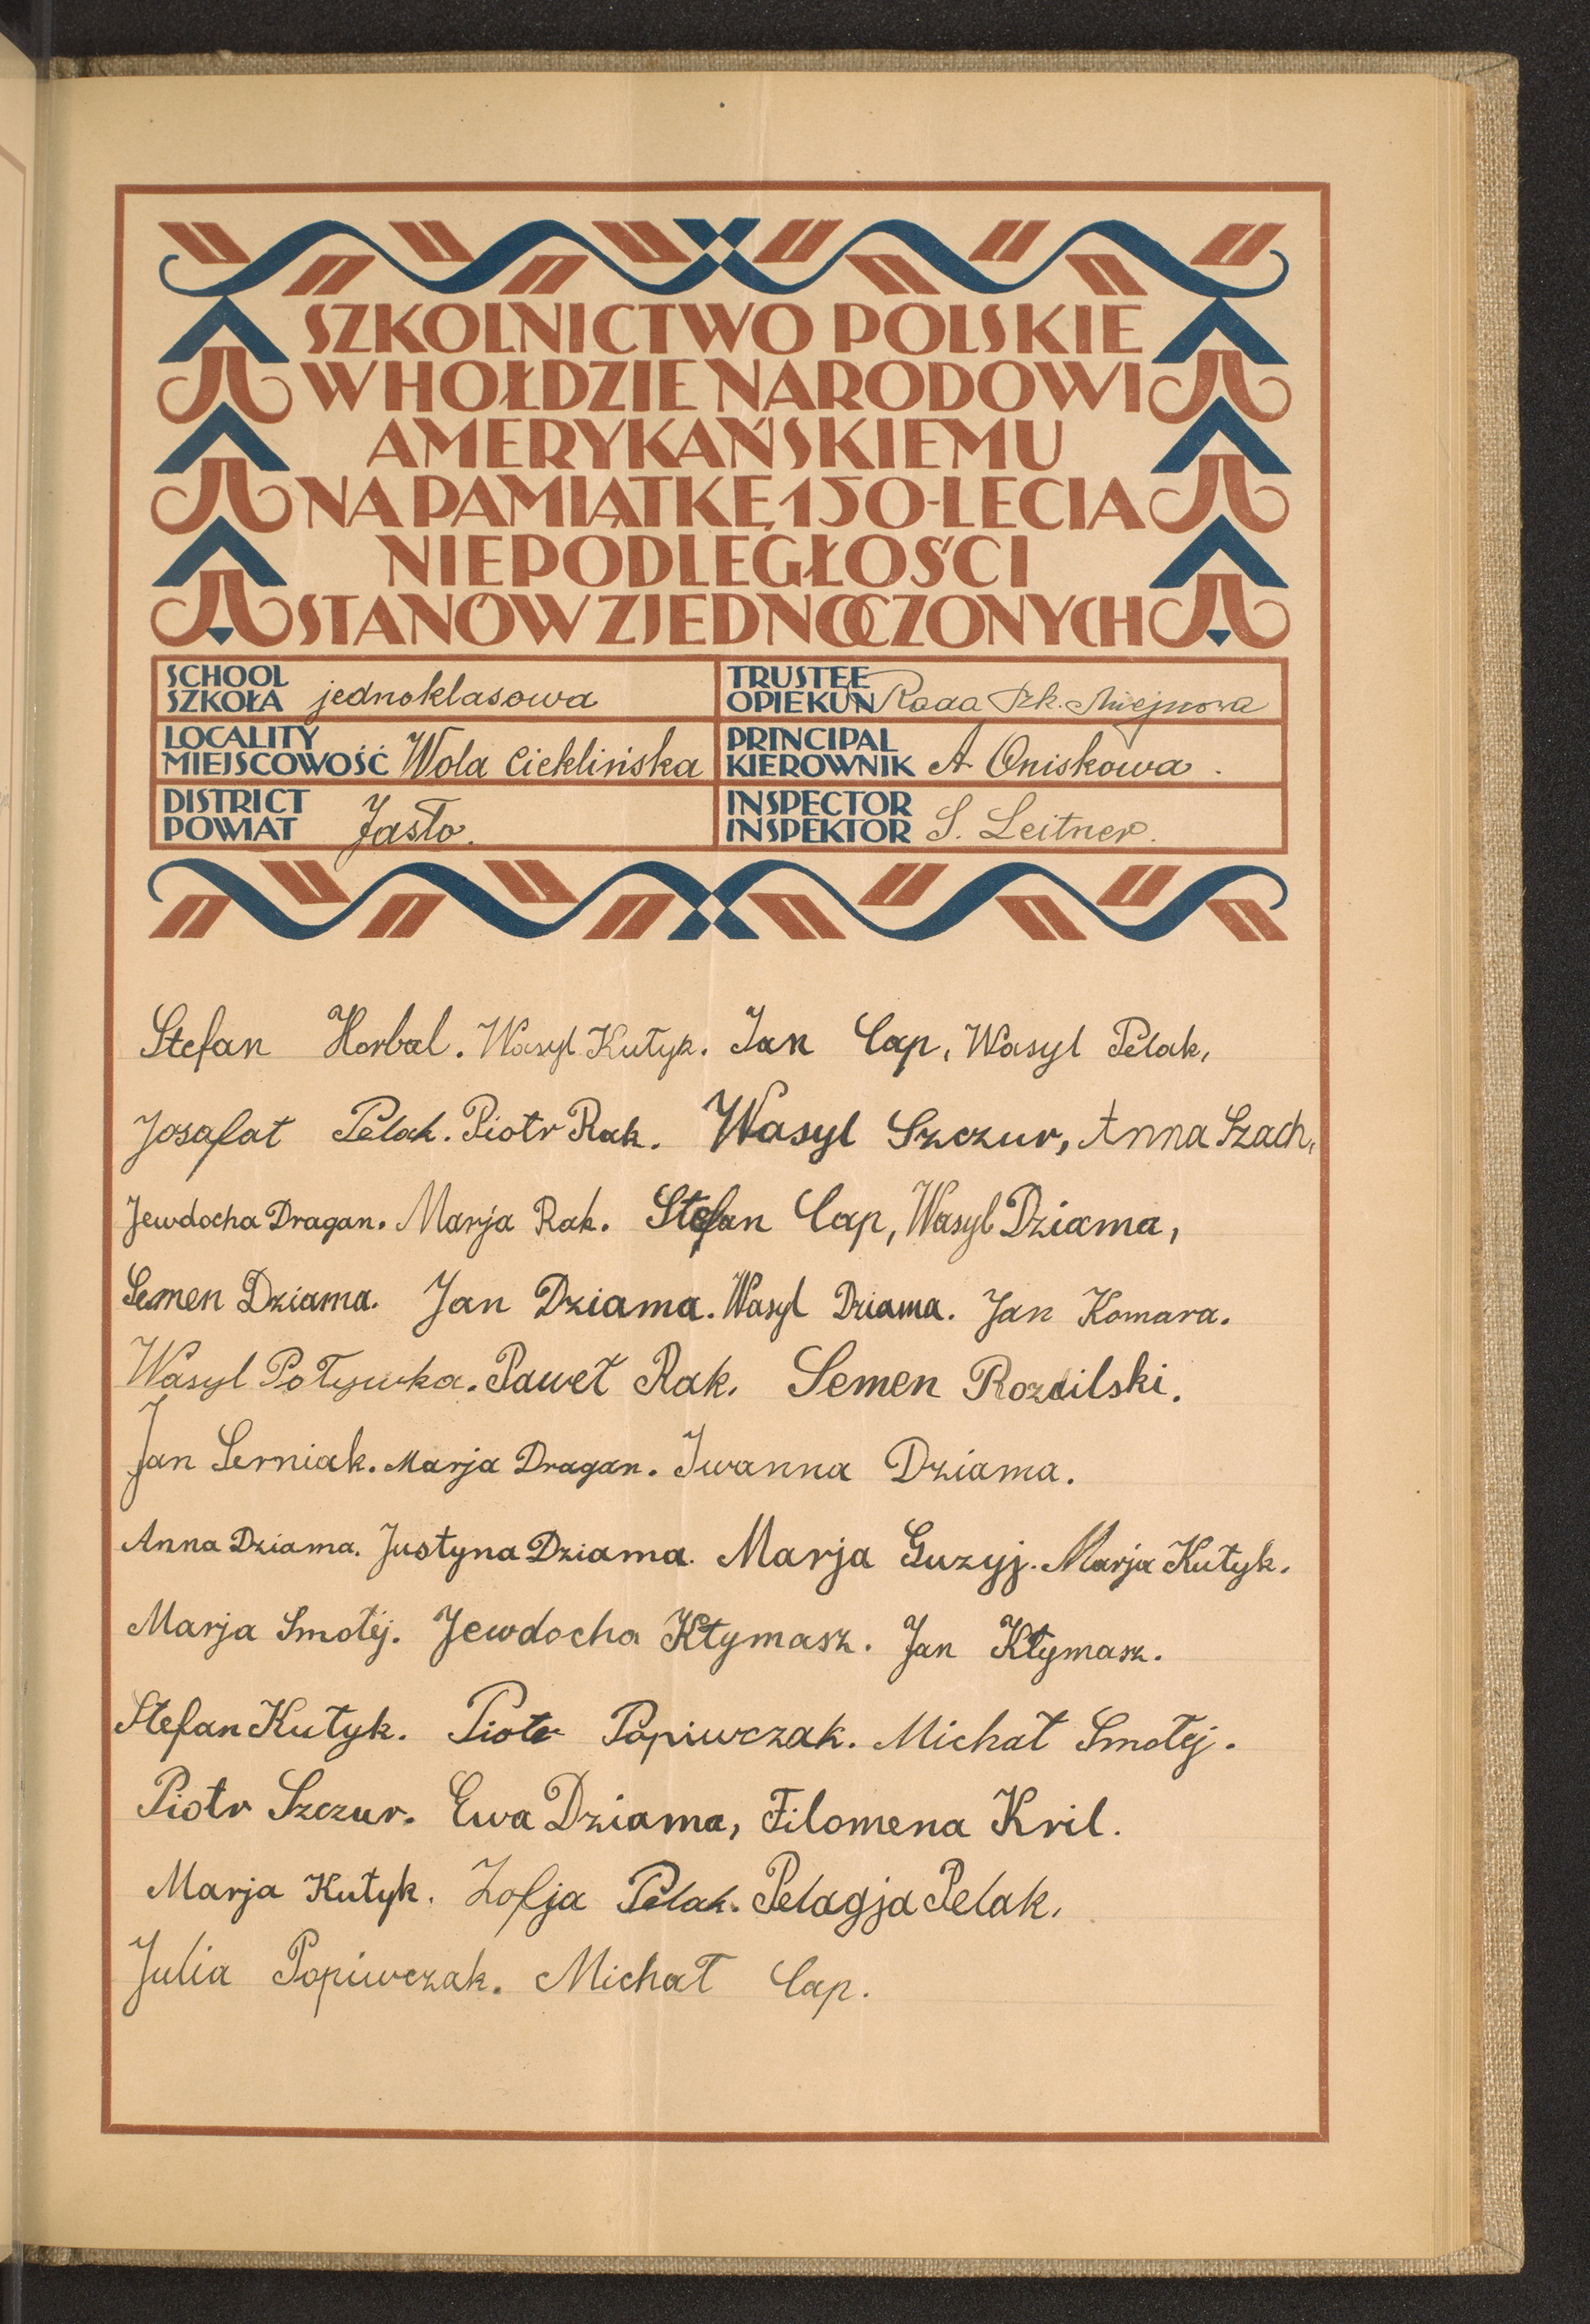 SZKOLNICTWO POLSKIE
W HOŁDZIE NARODOWI
AMERYKAŃSKIEMU
NA PAMIĄTKĘ 150-LECIA
NIEPODLEGŁOŚCI
STANÓW ZJEDNOCZONYCH
SCHOOL
SZKOŁA jednoklasowa
TRUSTEE
OPIEKUN Rada Szk. Miejscowa
LOCALITY
MIEJSCOWOŚĆ Wola Cieklińska
PRINCIPAL
KIEROWNIK A Oniskowa.
DISTRICT
POWIAT Jasło.
INSPECTOR
INSPEKTOR S. Leitner.
Stefan Horbal. Wasyl Kutyk. Jan Cap, Wasyl Pelak,
Josafat Pelak. Piotr Rak. Wasyl Szczur, Anna Szach,
Jewdocha Dragan. Marja Rak. Stefan Cap, Wasyl Dziama,
Semen Dziama. Jan Dziama. Wasyl Dziama. Jan Komara.
Wasyl Poływka. Paweł Rak. Semen Rozdilski.
Jan Serniak. Marja Dragan. Iwanna Dziama.
Anna Dziama. Justyna Dziama. Marja Guzyj. Marja Kutyk.
Marja Smołej. Jewdocha Kłymasz. Jan Kłymasz.
Stefan Kutyk. Piotr Popiwczak. Michał Smołej.
Piotr Szczur. Ewa Dziama, Filomena Kril.
Marja Kutyk. Zofja Pelak. Pelagja Pelak.
Julia Popiwczak. Michał Cap.